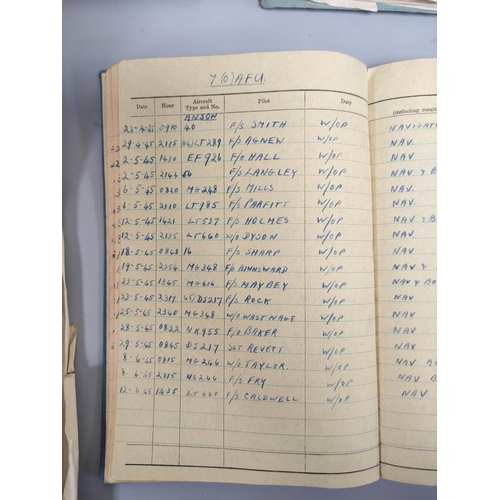 7 (O) AFU.
Date Hour Aircraft Type and No. Pilot Duty (including resul
ANSON
23-4-45 0910 40 F/S SMITH W/OP NAVIGAT
29-4-45 2115 LT289 F/S AGNEW W/OP NAV.
2-5-45 1430 EF926 F/O HALL W/OP NAV.
2-5-45 2144 56 F/S LANGLEY W/OP NAV Y B
6-5-45 0820 MG248 F/S MILLS W/OP NAV.
6-5-45 2110 LT985 F/S PARFITT W/OP NAV.
12-5-45 1421 LT537 F/S HOLMES W/OP NAV Y B
12-5-45 2135 LT660 W/O DYSON W/OP NAV.
18-5-45 0848 16 F/S SHARP W/OP NAV.
19-5-45 2354 MG348 W/OP NAV Y
23-5-45 1345 MG616 F/S MAYBEY W/OP NAV Y BO
23-5-45 2317 DJ217 F/S ROCK W/OP NAV
25-5-45 2340 MG348 W/O WASTNAGE W/OP NAV.
28-5-45 0822 NK955 F/O BAKER W/OP NAV
29-5-45 0845 DJ217 SGT REVETT W/OP NAV.
8-6-45 0815 MG246 W/O TAYLOR. W/OP NAV BO
8-6-45 2315 F/S FRY W/OP NAV B
12-6-45 1435 LT660 F/S CALDWELL W/OP NAV